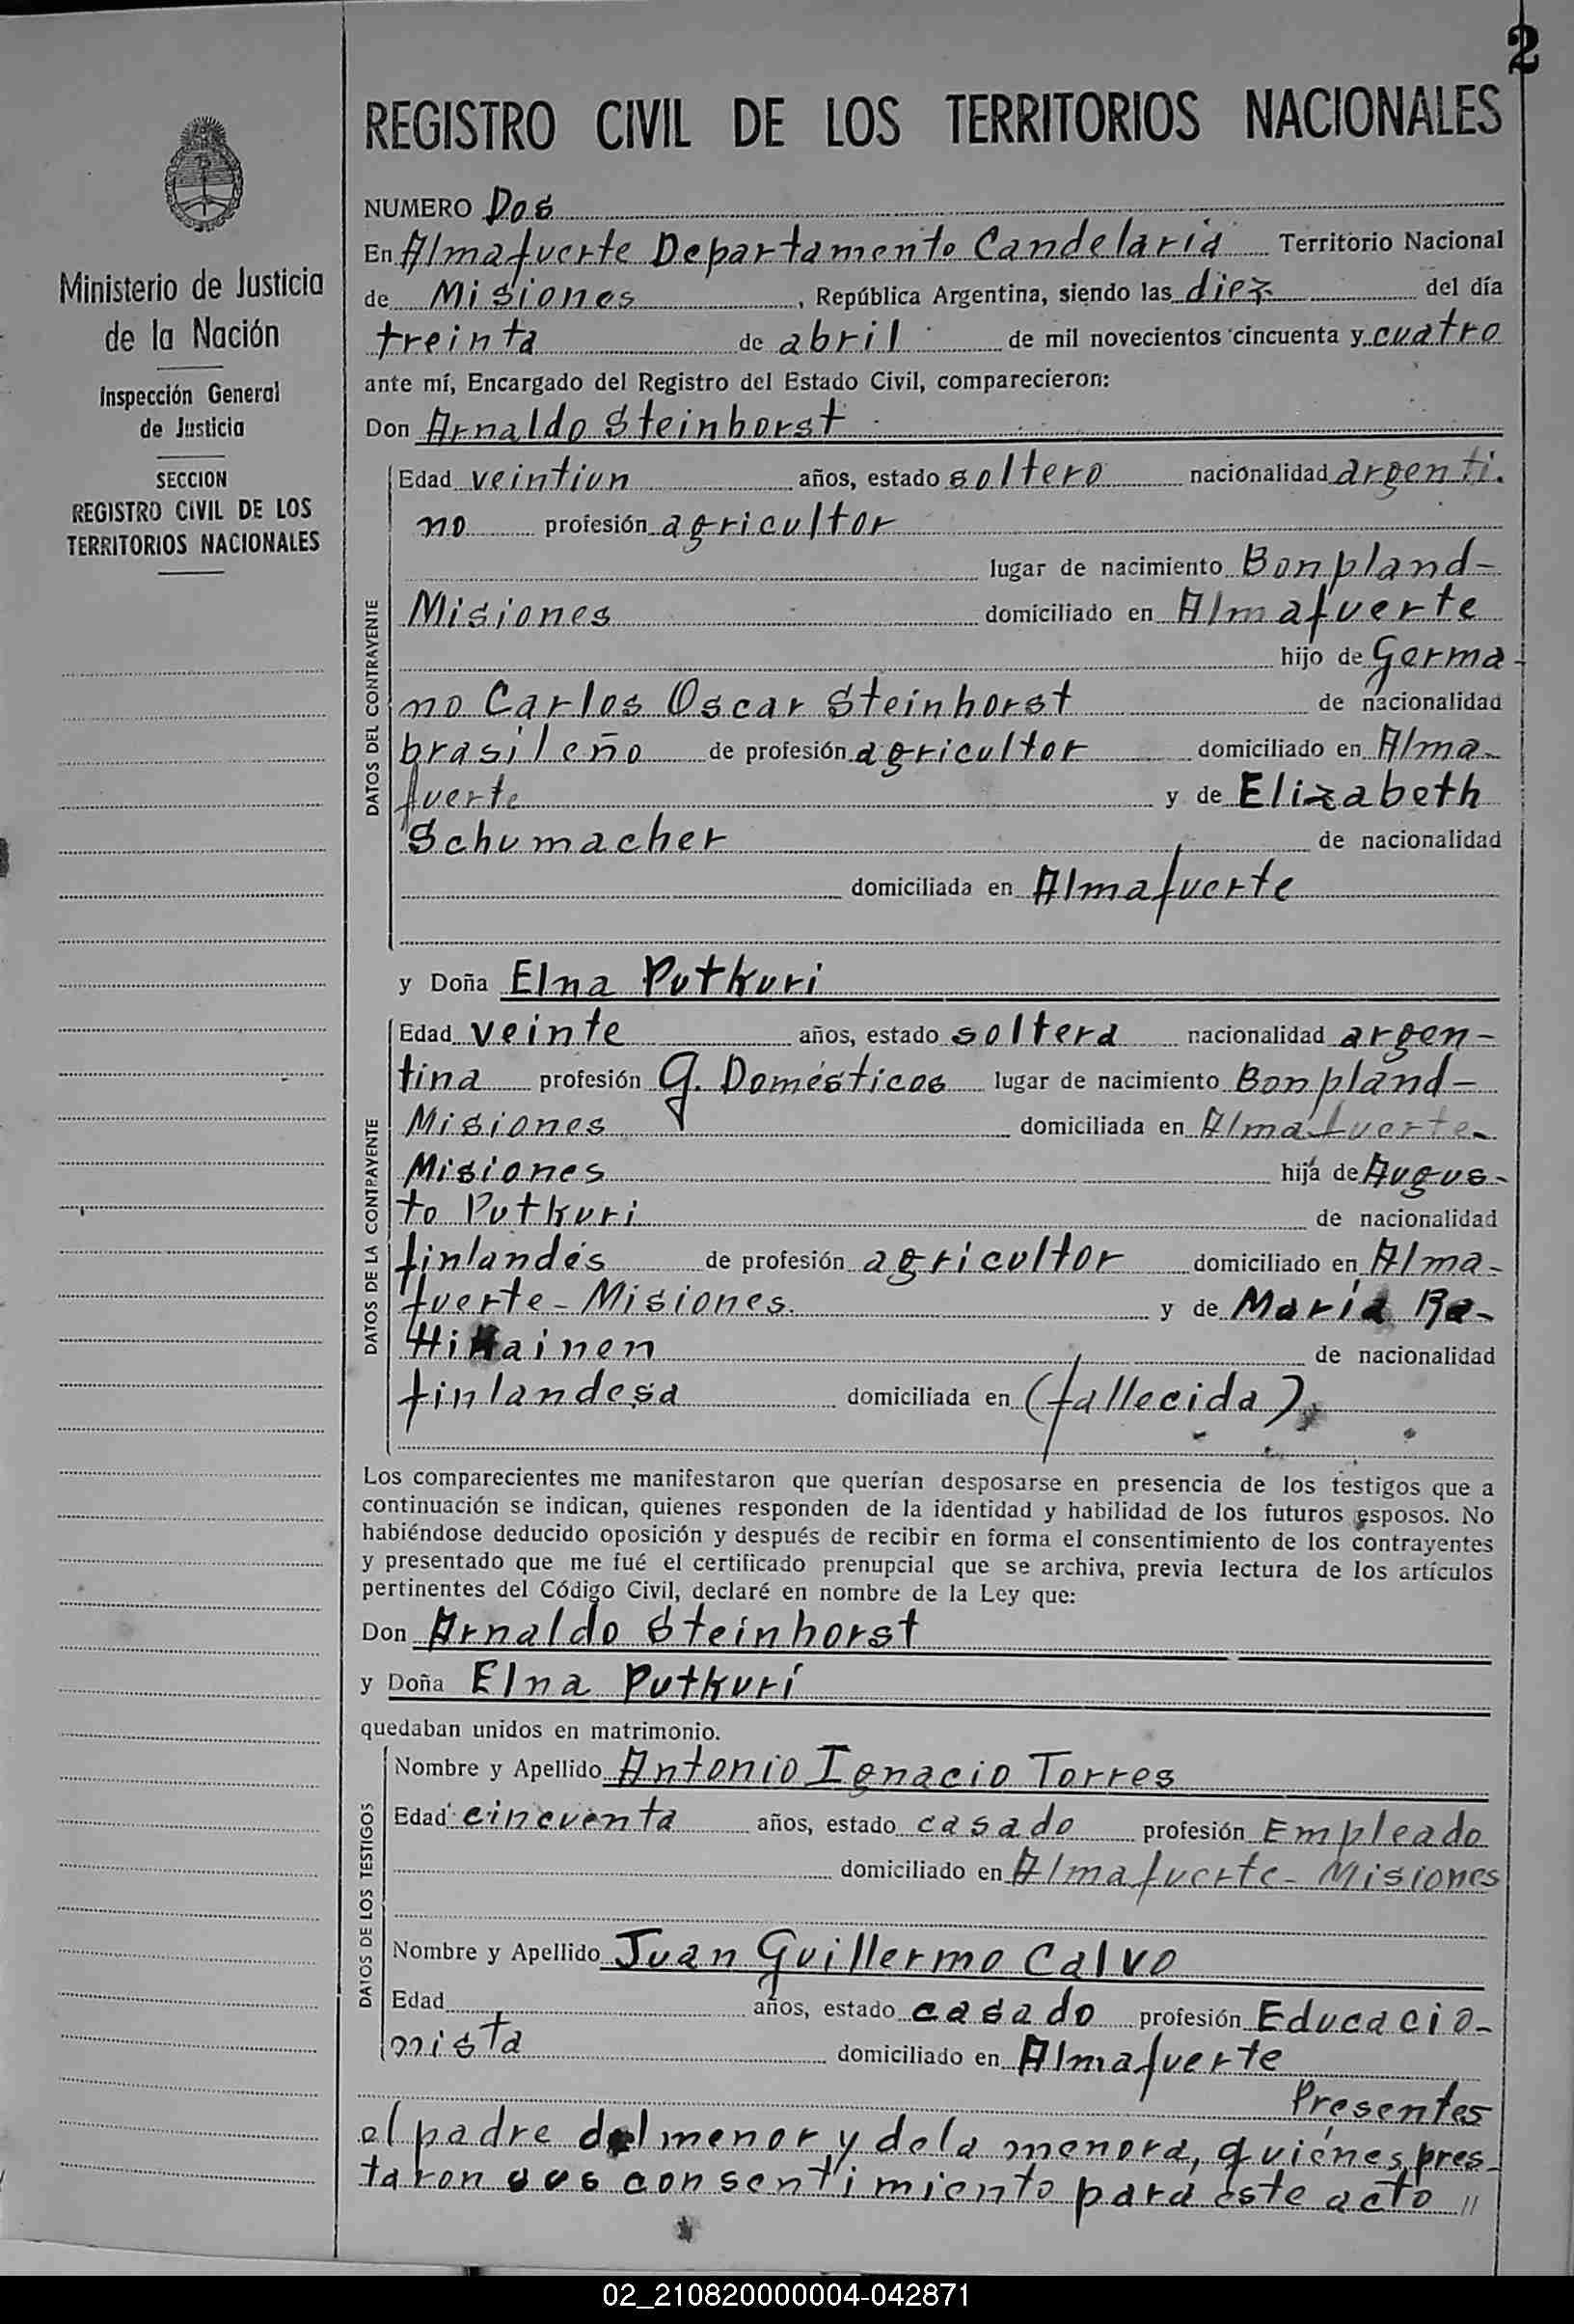 2
REGISTRO CIVIL DE LOS TERRITORIOS NACIONALES
Ministerio de Justicia
de la Nación
Inspección General
de Justicia
SECCION
REGISTRO CIVIL DE LOS
TERRITORIOS NACIONALES
NUMERO Dos
En Almafuerte Departamento Candelaria Territorio Nacional
de Misiones, República Argentina, siendo las diez del día
treinta de abril de mil novecientos cincuenta y cuatro
ante mí, Encargado del Registro del Estado Civil, comparecieron:
Don Arnaldo Steinhorst
DATOS DEL CONTRAYENTE
Edad veintiun años, estado soltero nacionalidad argenti-
no profesión agricultor
lugar de nacimiento Bonpland-
Misiones domiciliado en Almafuerte
hijo de Germa-
no Carlos Oscar Steinhorst de nacionalidad
brasileño de profesión agricultor domiciliado en Alma-
fuerte y de Elizabeth
Schumacher de nacionalidad
domiciliada en Almafuerte
y Doña Elna Putkuri
DATOS DE LA CONTRAYENTE
Edad veinte años, estado soltera nacionalidad argen-
tina profesión Q. Domésticos lugar de nacimiento Bonpland-
Misiones domiciliada en Almafuerte-
Misiones hija de Augus-
to Putkuri de nacionalidad
finlandés de profesión agricultor domiciliado en Alma-
fuerte-Misiones. y de María
de nacionalidad
finlandesa domiciliada en (fallecida)
Los comparecientes me manifestaron que querían desposarse en presencia de los testigos que a
continuación se indican, quienes responden de la identidad y habilidad de los futuros esposos. No
habiéndose deducido oposición y después de recibir en forma el consentimiento de los contrayentes
y presentado que me fué el certificado prenupcial que se archiva, previa lectura de los artículos
pertinentes del Código Civil, declaré en nombre de la Ley que:
Don Arnaldo Steinhorst
y Doña Elna Putkuri
quedaban unidos en matrimonio.
DATOS DE LOS TESTIGOS
Nombre y Apellido Antonio Ignacio Torres
Edad cincuenta años, estado casado profesión Empleado
domiciliado en Almafuerte-Misiones
Nombre y Apellido Juan Guillermo Calvo
Edad años, estado casado profesión Educacio-
nista domiciliado en Almafuerte
Presentes
el padre del menor y de la menora, quiénes pres-
taron sus consentimiento para éste acto "
02_210820000004-042871